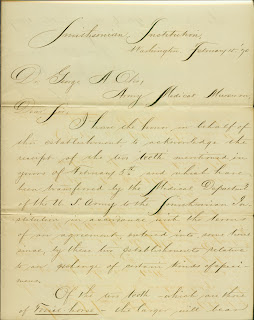 Smithsonian Institution,
Washington February 10th 70
Dr George A Otis,
Army Medical Museum
Dear Sir,
I have the honor in behalf of
this establishment to acknowledge the
receipt of the two teeth mentioned in
yours of February 8th and which have
been transferred by the Medical Departmt
of the U. S. Army to the Smithsonian In
stitution in accordance with the terms
of an agreement entered into some time
since, by these two establishments relative
to an exchange of certain kinds of speci
mens.
Of the two teeth - which are those
of Fossil horse - the larger will